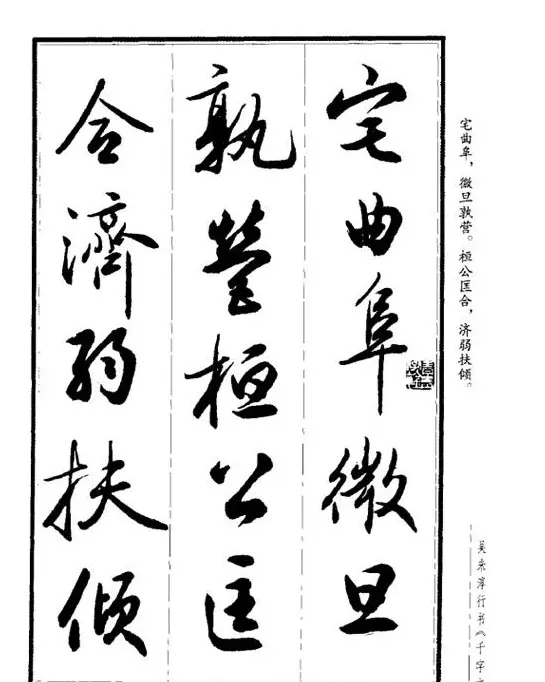 宅曲阜微旦
孰營桓公匡
合濟弱扶傾
宅曲阜，微旦孰营。桓公匡合，济弱扶倾。
吴未淳行书《千字文